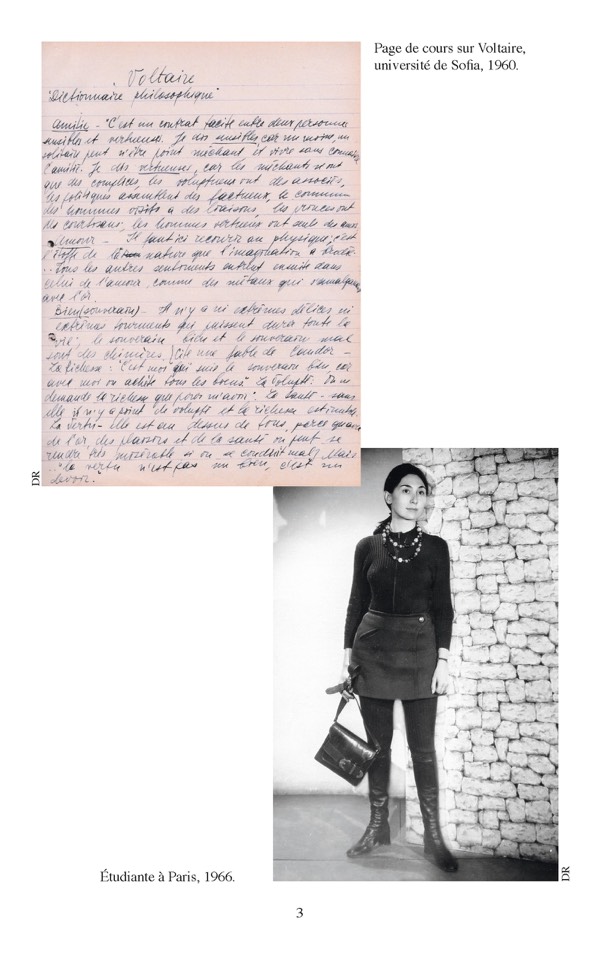 Page de cours sur Voltaire,
université de Sofia, 1960.
Voltaire
"Dictionnaire philosophique"
Amitié - "C'est un contrat tacite entre deux personnes
sensibles et vertueuses. Je dis sensibles car un moine, un
solitaire peut n'être point méchant et vivre sans connaître
l'amitié. Je dis vertueuses, car les méchants n'ont
que des complices, les voluptueux ont des associés,
les politiques assemblent des factieux, le commun
des hommes oisifs a des liaisons, les princes ont
des courtisans; les hommes vertueux ont seuls des amis
Amour - Il faut ici recourir au physique; c'est
l'étoffe de la nature que l'imagination a brodée
Tous les autres sentiments entrent ensuite dans
celui de l'amour, comme des métaux qui s'amalgament
avec l'or.
Bien (souverain) - Il n'y a ni extrêmes délices ni
extrêmes tourments qui puissent durer toute la
vie; le souverain bien et le souverain mal
sont des chimères. (Cite une fable de Crantor -
La Richesse: "C'est moi qui suis le souverain bien car
avec moi on achète tous les biens." La Volupté: On ne
demande la richesse que pour m'avoir". La Santé - sans
elle il n'y a point de volupté et la richesse est inutile
La Vertu - elle est au dessus de tous, parce qu'avec
de l'or, des plaisirs et de la santé on peut se
rendre très misérable si on se conduit mal) Mais
"la vertu n'est pas un bien, c'est un
devoir.
DR
DR
Étudiante à Paris, 1966.
3